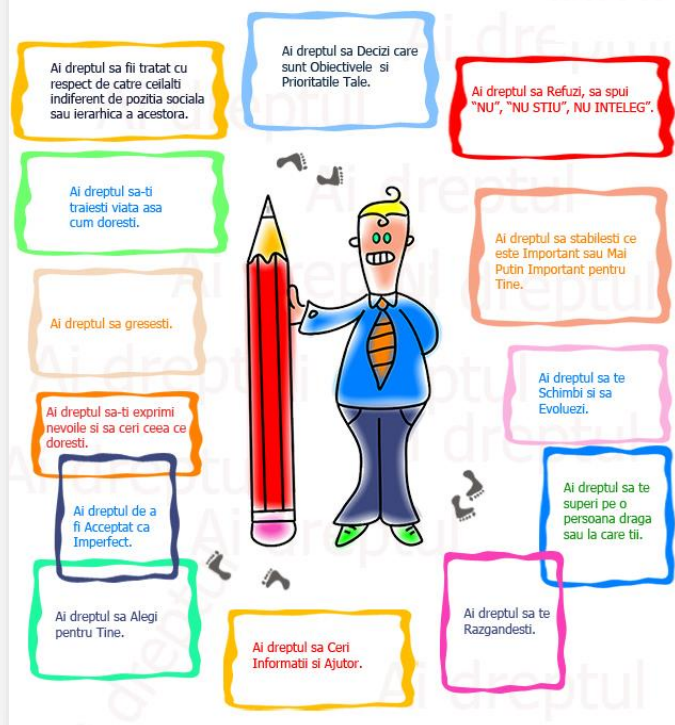 Ai dreptul sa fii tratat cu
respect de catre ceilalti
indiferent de pozitia sociala
sau ierarhica a acestora.
Ai dreptul sa Decizi care
sunt Obiectivele si
Prioritatile Tale.
Ai dreptul sa Refuzi, sa spui
“NU”, “NU STIU”, NU INTELEG”.
Ai dreptul sa-ti
traiesti viata asa
cum doresti.
Ai dreptul sa stabilesti ce
este Important sau Mai
Putin Important pentru
Tine.
Ai dreptul sa gresesti.
Ai dreptul sa te
Schimbi si sa
Evoluezi.
Ai dreptul sa-ti exprimi
nevoile si sa ceri ceea ce
doresti.
Ai dreptul de a
fi Acceptat ca
Imperfect.
Ai dreptul sa te
superi pe o
persoana draga
sau la care tii.
Ai dreptul sa Alegi
pentru Tine.
Ai dreptul sa Ceri
Informatii si Ajutor.
Ai dreptul sa te
Razgandesti.